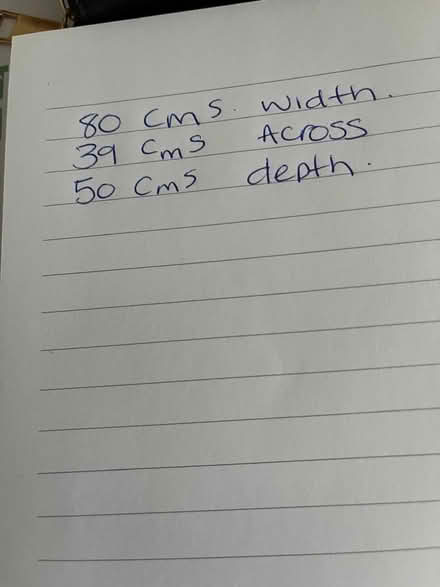 80 cms. width.
39 cms Across
50 cms depth.